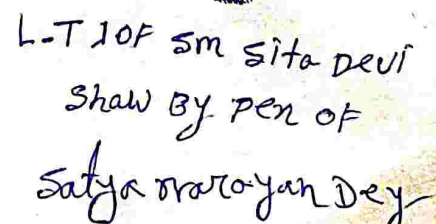 L.T I OF Sm Sita Devi
Shaw By pen of
Satya Narayan Dey